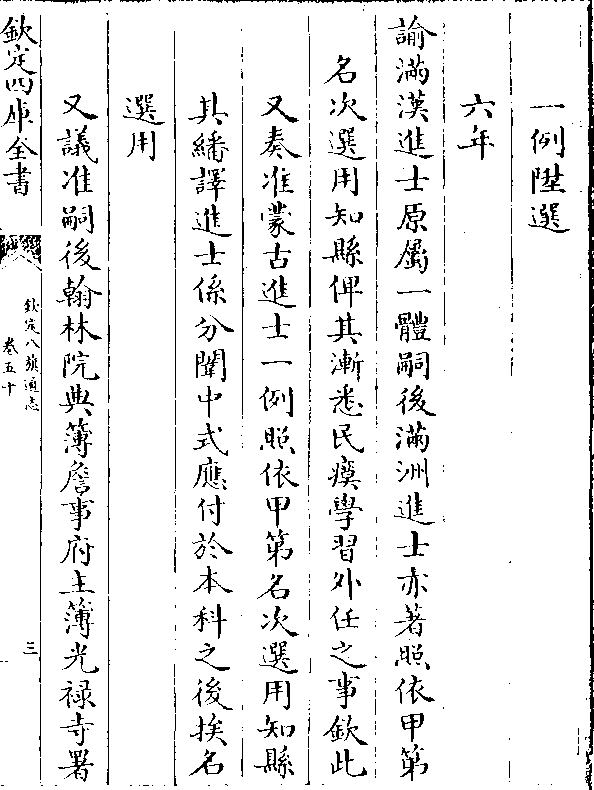 一例陞選
六年
諭滿漢進士原屬一體嗣後滿洲進士亦著照依甲第
名次選用知縣俾其漸悉民瘼學習外任之事欽此
又奏准蒙古進士一例照依甲第名次選用知縣
其繙譯進士係分闈中式應付於本科之後挨名
選用
又議准嗣後翰林院典簿詹事府主簿光禄寺署
欽定四庫全書
欽定八旗通志
卷五十
三